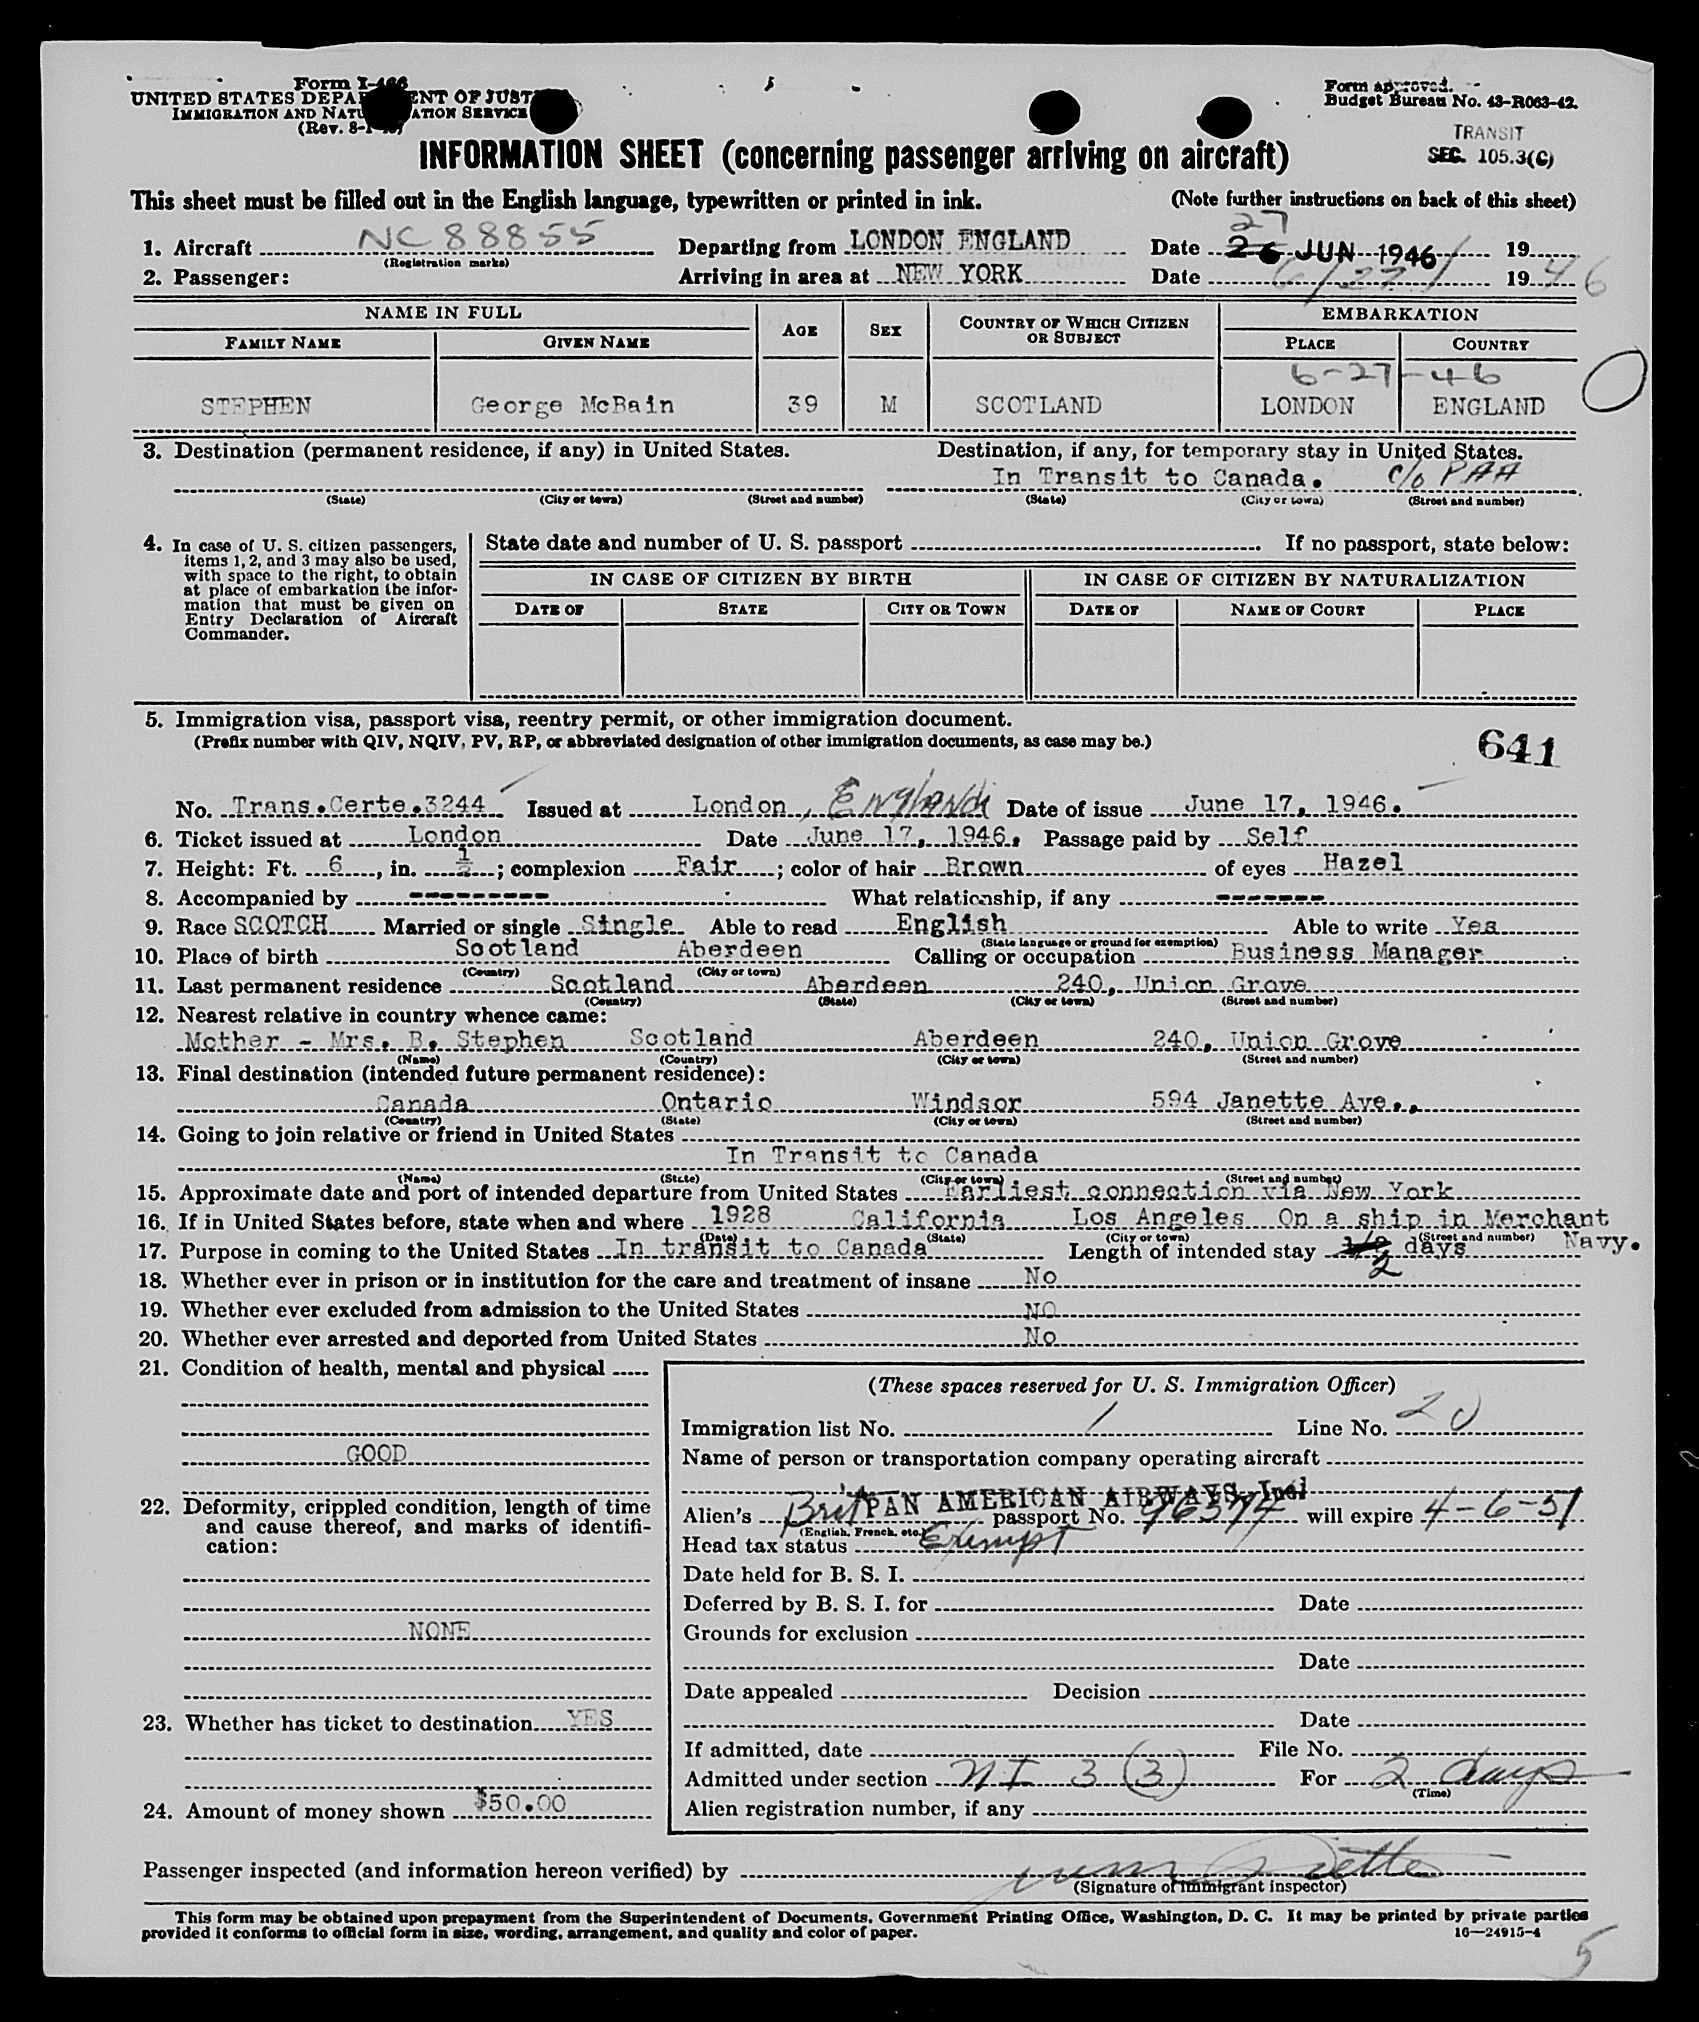 Form I-466
UNITED STATES DEPA ENT OF JUST
IMMIGRATION AND NATU ATION SERVICE
(Rev. 8-1-
Form approved.
Budget Bureau No. 43-R063-42.
TRANSIT
SEC. 105.3(C)
INFORMATION SHEET (concerning passenger arriving on aircraft)
This sheet must be filled out in the English language, typewritten or printed in ink. (Note further instructions on back of this sheet)
27
1. Aircraft NC 88855 Departing from LONDON ENGLAND Date 26 JUN 1946 19
(Registration marks)
2. Passenger: Arriving in area at NEW YORK Date 6/27/ 1946
NAME IN FULL AGE SEX COUNTRY OF WHICH CITIZEN OR SUBJECT EMBARKATION
FAMILY NAME GIVEN NAME PLACE COUNTRY
6-27-46
STEPHEN George McBain 39 M SCOTLAND LONDON ENGLAND
3. Destination (permanent residence, if any) in United States. Destination, if any, for temporary stay in United States.
In Transit to Canada. c/o PAA
(State) (City or town) (Street and number) (State) (City or town) (Street and number)
4. In case of U. S. citizen passengers, items 1, 2, and 3 may also be used, with space to the right, to obtain at place of embarkation the information that must be given on Entry Declaration of Aircraft Commander.
State date and number of U. S. passport . If no passport, state below:
IN CASE OF CITIZEN BY BIRTH IN CASE OF CITIZEN BY NATURALIZATION
DATE OF STATE CITY OR TOWN DATE OF NAME OF COURT PLACE
5. Immigration visa, passport visa, reentry permit, or other immigration document.
(Prefix number with QIV, NQIV, PV, RP, or abbreviated designation of other immigration documents, as case may be.)
641
No. Trans.Certe.3244 Issued at London, England Date of issue June 17, 1946.
6. Ticket issued at London Date June 17, 1946. Passage paid by Self
7. Height: Ft. 6, in. 1/2; complexion Fair; color of hair Brown of eyes Hazel
8. Accompanied by --------- What relationship, if any -------
9. Race SCOTCH Married or single Single Able to read English Able to write Yes
(State language or ground for exemption)
10. Place of birth Scotland Aberdeen Calling or occupation Business Manager
(Country) (City or town)
11. Last permanent residence Scotland Aberdeen 240, Union Grove
(Country) (State) (City or town) (Street and number)
12. Nearest relative in country whence came:
Mother - Mrs. B. Stephen Scotland Aberdeen 240, Union Grove
(Name) (Country) (City or town) (Street and number)
13. Final destination (intended future permanent residence):
Canada Ontario Windsor 594 Janette Ave.,
(Country) (State) (City or town) (Street and number)
14. Going to join relative or friend in United States
In Transit to Canada
(Name) (State) (City or town) (Street and number)
15. Approximate date and port of intended departure from United States Earliest connection via New York
16. If in United States before, state when and where 1928 California Los Angeles On a ship in Merchant Navy.
(Date) (State) (City or town) (Street and number)
17. Purpose in coming to the United States In transit to Canada Length of intended stay 2 days
18. Whether ever in prison or in institution for the care and treatment of insane No
19. Whether ever excluded from admission to the United States NO
20. Whether ever arrested and deported from United States No
21. Condition of health, mental and physical
GOOD
22. Deformity, crippled condition, length of time and cause thereof, and marks of identification:
NONE
23. Whether has ticket to destination YES
24. Amount of money shown $50.00
(These spaces reserved for U. S. Immigration Officer)
Immigration list No. 1 Line No. 20
Name of person or transportation company operating aircraft
PAN AMERICAN AIRWAYS, Inc.
Alien's Brit passport No. 96374 will expire 4-6-51
(English, French, etc.)
Head tax status Exempt
Date held for B. S. I.
Deferred by B. S. I. for Date
Grounds for exclusion
Date
Date appealed Decision
Date
If admitted, date File No.
Admitted under section NI 3 (3) For 2 days
(Time)
Alien registration number, if any
Passenger inspected (and information hereon verified) by
(Signature of immigrant inspector)
This form may be obtained upon prepayment from the Superintendent of Documents, Government Printing Office, Washington, D. C. It may be printed by private parties
provided it conforms to official form in size, wording, arrangement, and quality and color of paper.
16—24915-4
5